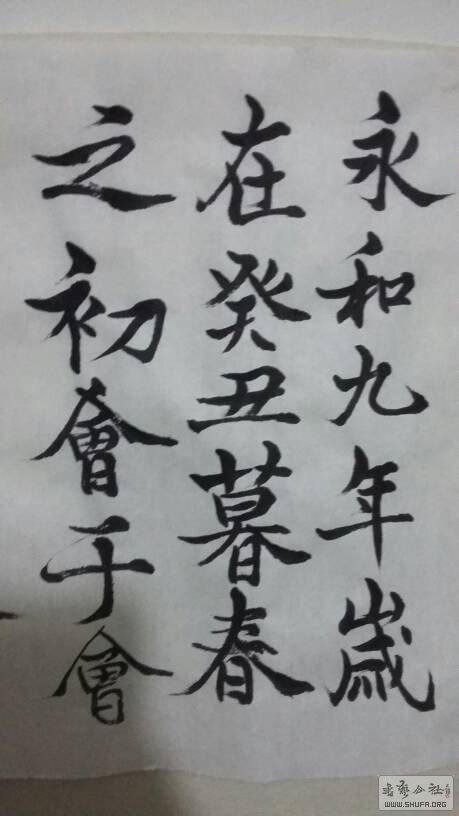 永和九年歲
在癸丑暮春
之初會于會
书法公社
WWW.SHUFA.ORG